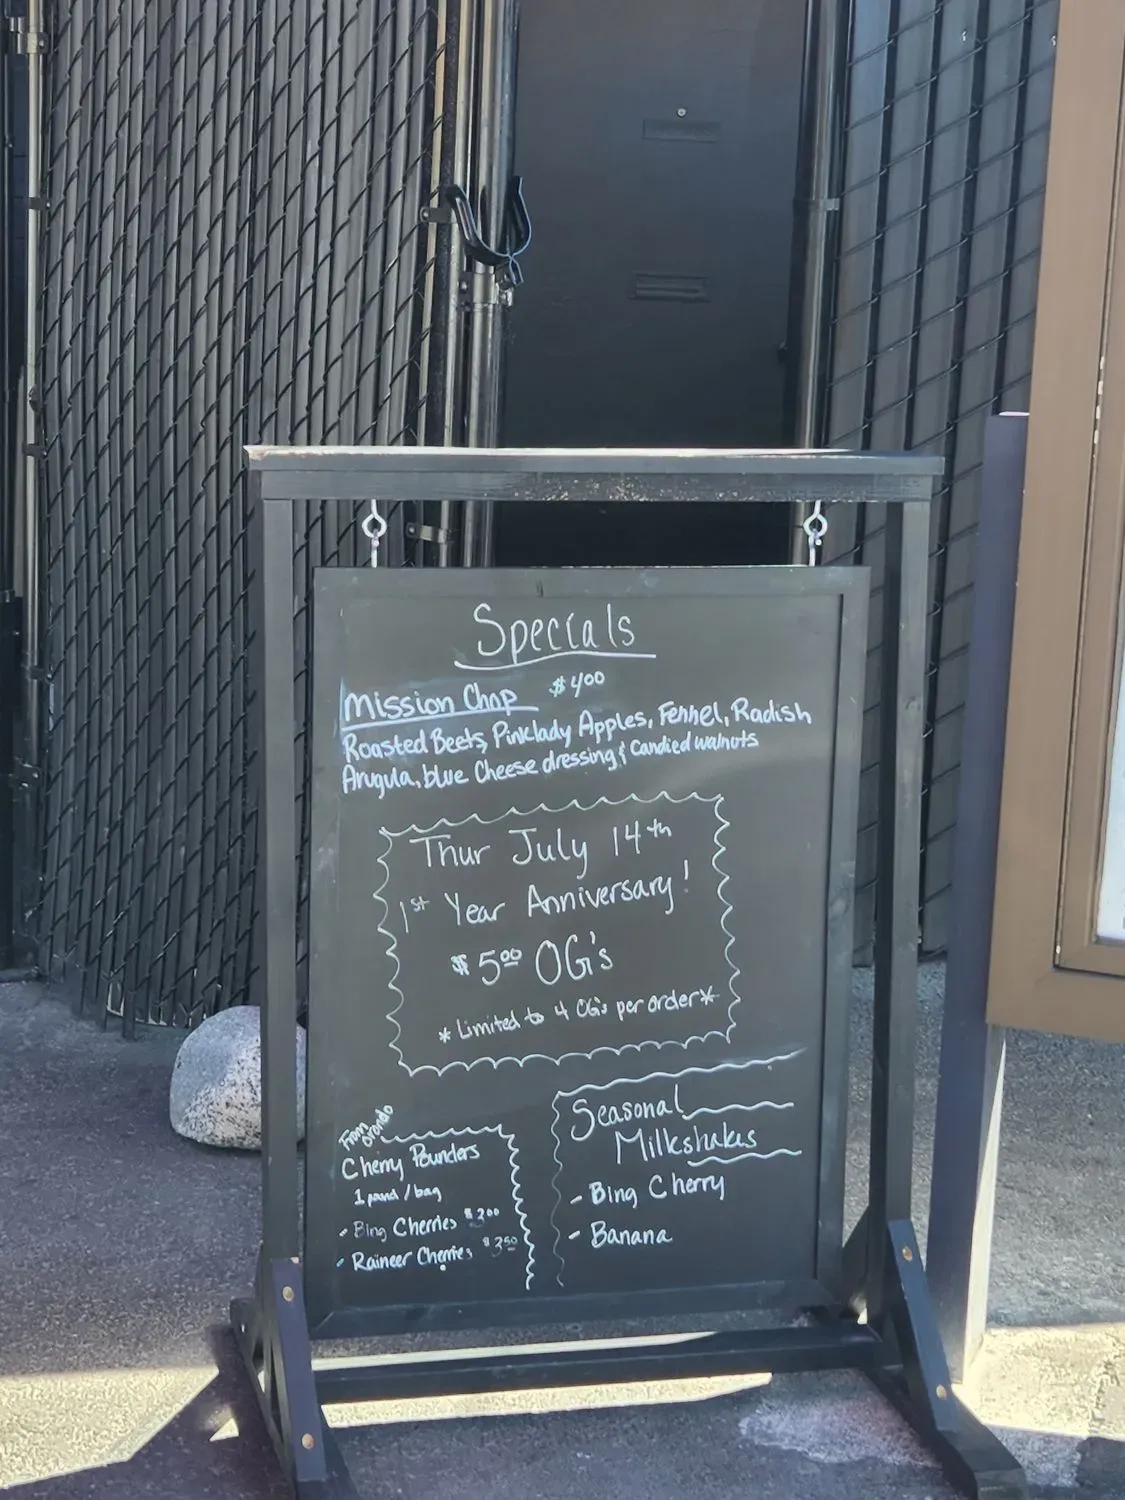 Specials
Mission Chop $4.00
Roasted Beets, Pinklady Apples, Fennel, Radish
Arugula, blue Cheese dressing, & Candied walnuts
Thur July 14th
1st Year Anniversary!
$5.00 OG's
*Limited to 4 OG's per order*
From Orondo
Cherry Pounders
1 pound / bag
- Bing Cherries $3.00
- Raineer Cherries $3.50
Seasonal
Milkshakes
- Bing Cherry
- Banana